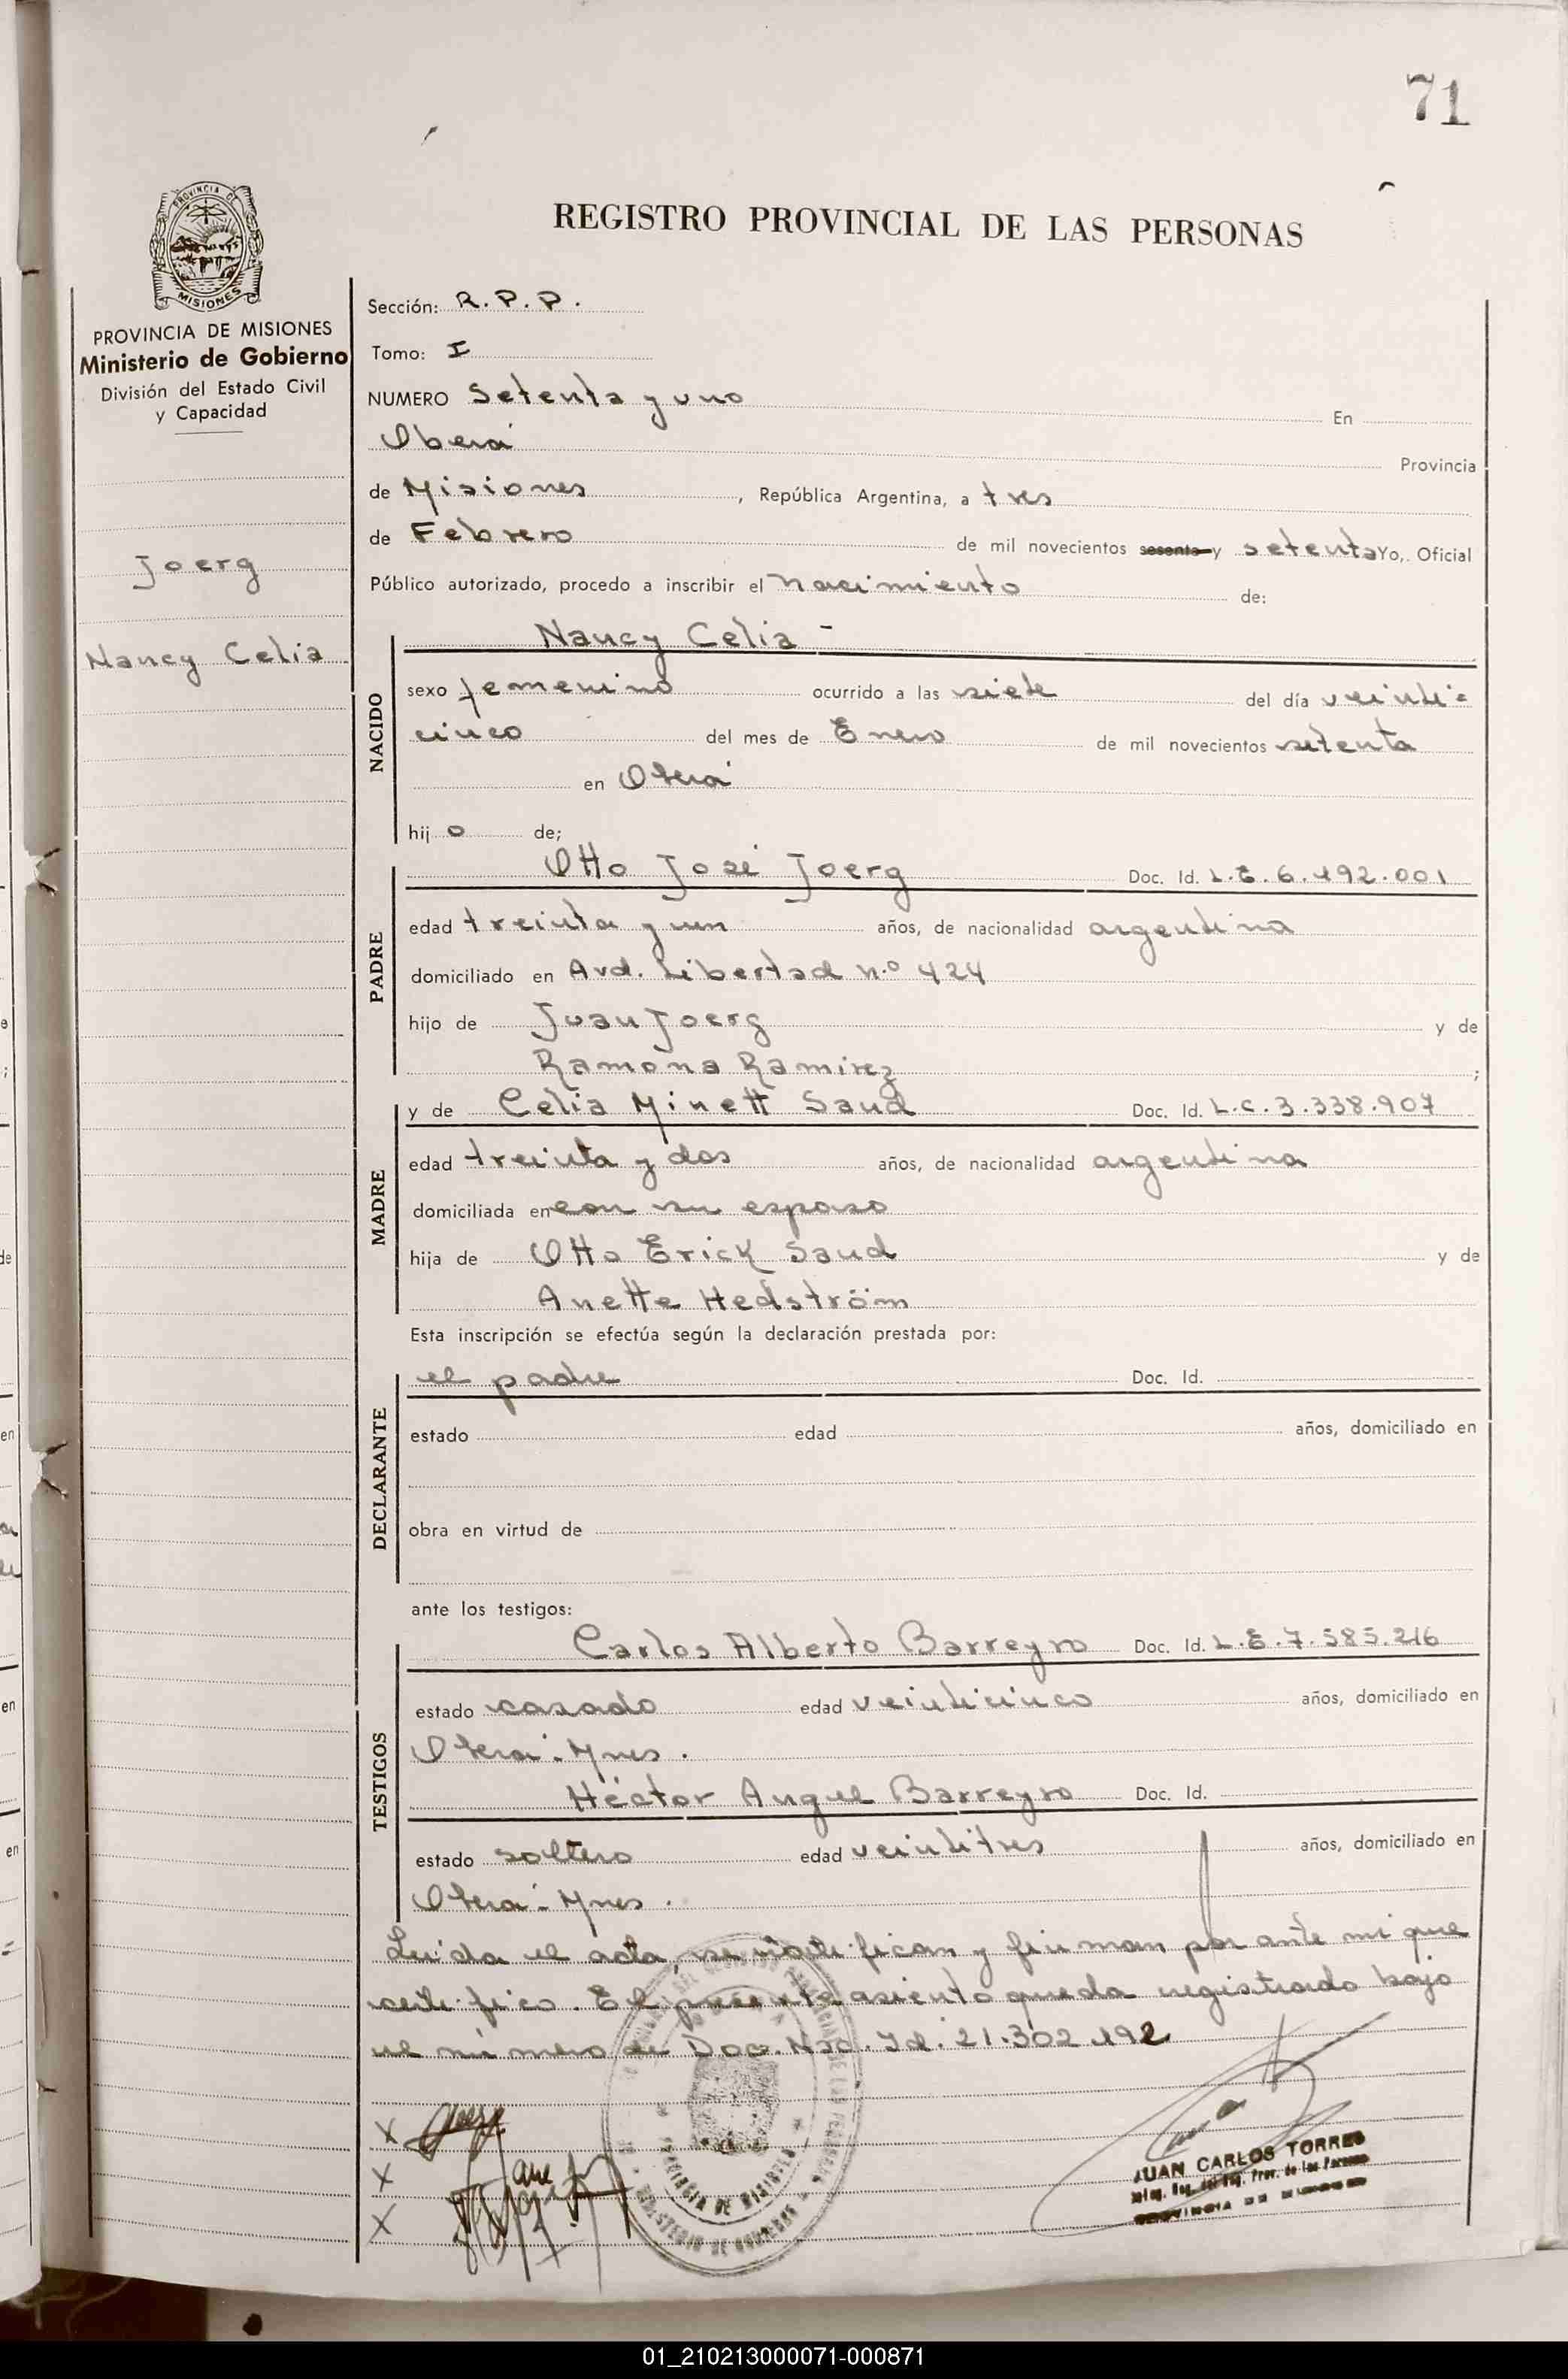 71
REGISTRO PROVINCIAL DE LAS PERSONAS
PROVINCIA DE MISIONES
PROVINCIA DE MISIONES
Ministerio de Gobierno
División del Estado Civil
y Capacidad
Joerg
Nancy Celia
Sección: R.P.P.
Tomo: I
NUMERO Setenta y uno En
Oberá Provincia
de Misiones, República Argentina, a tres
de Febrero de mil novecientos sesenta y setenta Yo, Oficial
Público autorizado, procedo a inscribir el nacimiento de:
NACIDO
Nancy Celia -
sexo femenino ocurrido a las siete del día veinti=
cinco del mes de Enero de mil novecientos setenta
en Oberá
hij o de;
PADRE
Otto José Joerg Doc. Id. L.E. 6.492.001
edad treinta y un años, de nacionalidad argentina
domiciliado en Avd. Libertad n.º 424
hijo de Juan Joerg y de
Ramona Ramirez ;
MADRE
y de Celia Minett Saud Doc. Id. L.C. 3.338.907
edad treinta y dos años, de nacionalidad argentina
domiciliada en con su esposo
hija de Otto Erick Saud y de
Anette Hedström
Esta inscripción se efectúa según la declaración prestada por:
DECLARANTE
el padre Doc. Id.
estado edad años, domiciliado en
obra en virtud de
ante los testigos:
TESTIGOS
Carlos Alberto Barreyro Doc. Id. L.E. 7.585.216
estado casado edad veinticinco años, domiciliado en
Oberá - Mnes.
Héctor Angel Barreyro Doc. Id.
estado soltero edad veintitres años, domiciliado en
Oberá - Mnes.
Leída el acta, se ratifican y firman por ante mi que
certifico. El presente asiento queda registrado bajo
el número de Doc. Nac. Id. 21.302.192
X
X
X
JUAN CARLOS TORRES
Prov. de las Personas
PROVINCIA DE MISIONES
01_210213000071-000871